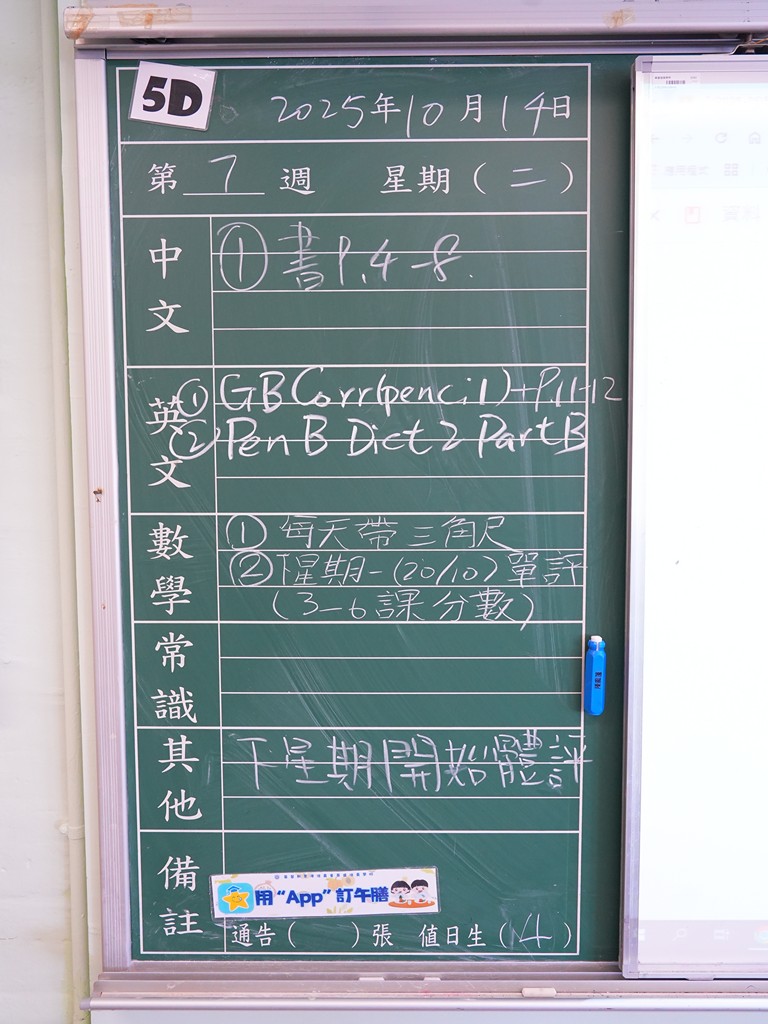 5D
2025年10月14日
第 7 週 星期（二）
中文
① 書P.4-8.
英文
① GB Corr(pencil)+P.11-12
② Pen B Dict 2 Part B
數學
① 每天帶三角尺
② 下星期一(20/10)單評
(3-6課分數)
常識
其他
下星期開始體評
備註
用“App”訂午膳
通告（ ）張 值日生（14）